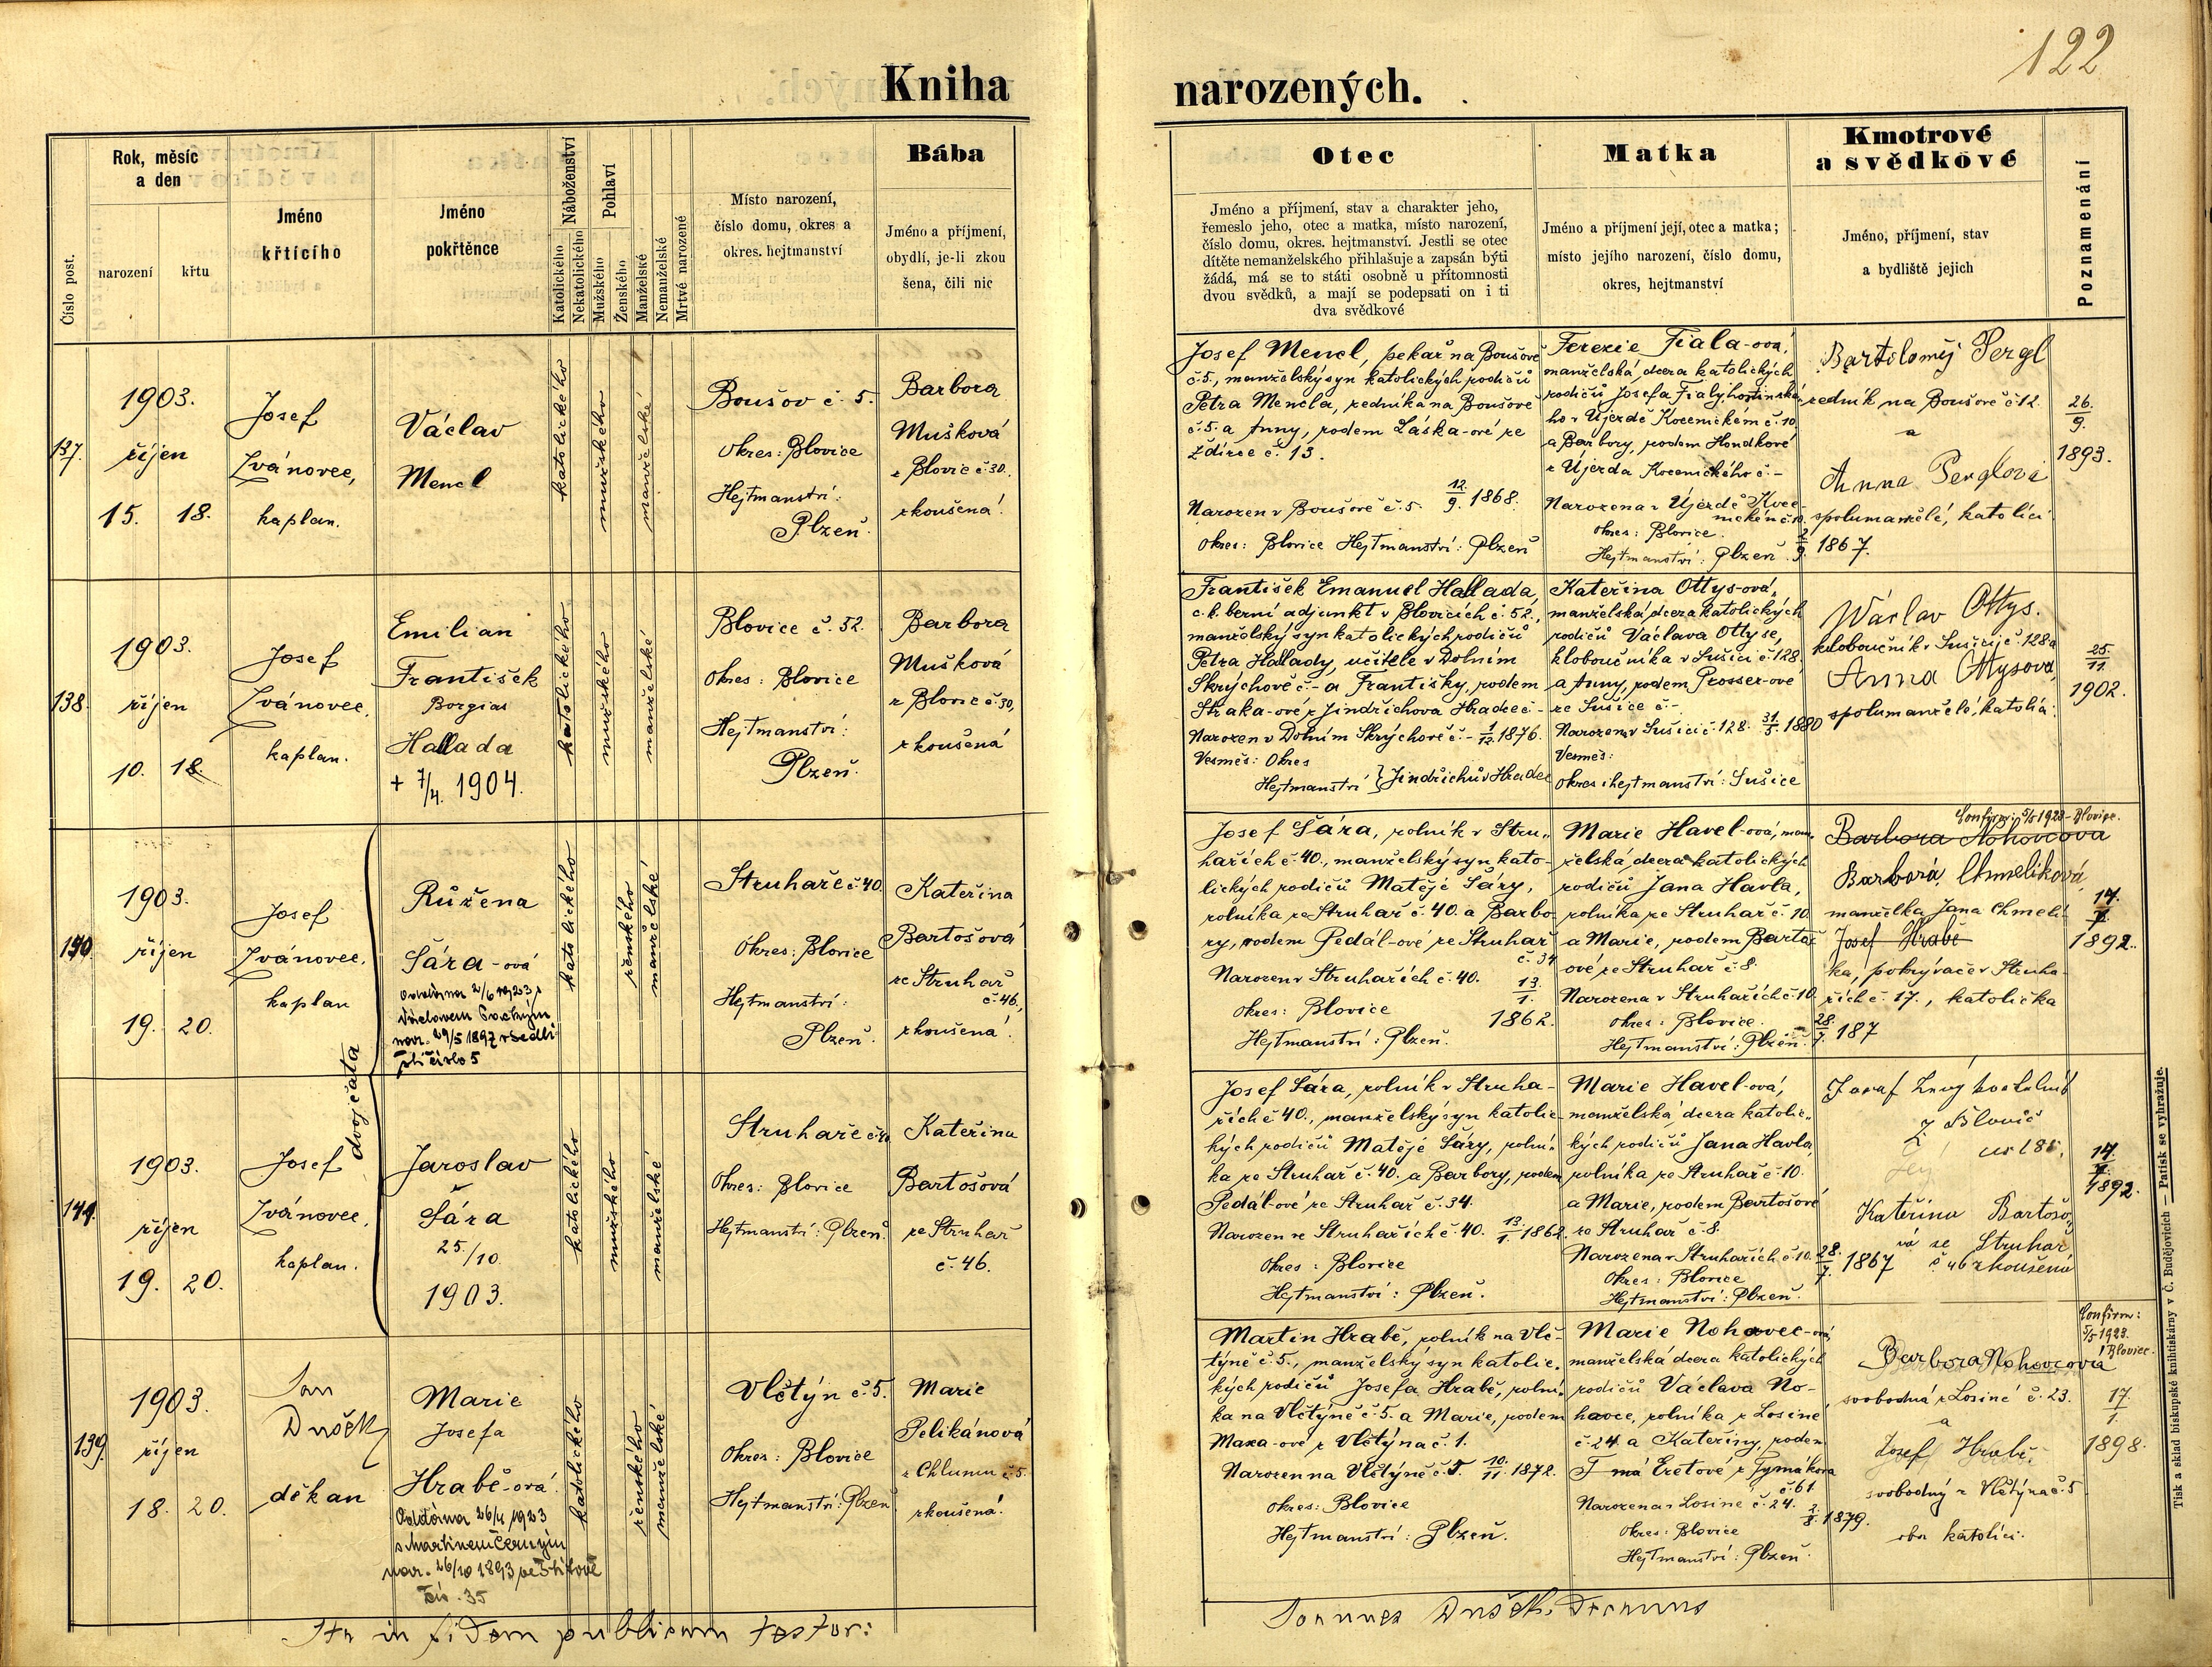 122
Kniha narozených.
Číslo post.
Rok, měsíc
a den
narození
křtu
Jméno
křtícího
Jméno
pokřtěnce
Náboženství
Katolického
Nekatolického
Pohlaví
Mužského
Ženského
Manželské
Nemanželské
Mrtvě narozené
Místo narození,
číslo domu, okres a
okres. hejtmanství
Bába
Jméno a příjmení,
obydlí, je-li zkou
šena, čili nic
Otec
Jméno a příjmení, stav a charakter jeho,
řemeslo jeho, otec a matka, místo narození,
číslo domu, okres. hejtmanství. Jestli se otec
dítěte nemanželského přihlašuje a zapsán býti
žádá, má se to státi osobně u přítomnosti
dvou svědků, a mají se podepsati on i ti
dva svědkové
Matka
Jméno a příjmení její, otec a matka;
místo jejího narození, číslo domu,
okres, hejtmanství
Kmotrové
a svědkové
Jméno, příjmení, stav
a bydliště jejich
Poznamenání
137.
1903.
říjen
15. 18.
Josef
Ivánovec,
kaplan.
Václav
Mencl
katolického
mužského
manželské
Boušov č. 5.
Okres: Blovice
Hejtmanství:
Plzeň.
Barbora
Mušková
z Blovic č. 30.
zkoušená.
Josef Mencl, pekař na Boušově
č. 5., manželský syn katolických rodičů
Petra Mencla, zedníka na Boušově
č. 5. a Anny, rodem Láska-ové ze
Ždírce č. 13.
Narozen v Boušově č. 5. 12/9. 1868.
Okres: Blovice Hejtmanství: Plzeň
Terezie Fiala-ová,
manželská dcera katolických
rodičů Josefa Fialy, hostinské-
ho v Újezdě Kocenickém č. 10.
a Barbory, rodem Hondkové
z Újezda Kocenického č. –
Narozena v Újezdě Koce-
nickém č. 10.
Okres: Blovice.
Hejtmanství: Plzeň. 2/9. 1867.
Bartoloměj Pergl
zedník na Boušově č. 12.
a
Anna Perglová
spolumanželé, katolíci
26./9.
1893.
138.
1903.
říjen
10. 18.
Josef
Ivánovec,
kaplan.
Emilian
František
Borgias
Hallada
+ 7/4. 1904.
katolického
mužského
manželské
Blovice č. 52.
Okres: Blovice
Hejtmanství:
Plzeň.
Barbora
Mušková
z Blovic č. 30,
zkoušená
František Emanuel Hallada,
c. k. berní adjunkt v Blovicích č. 52.,
manželský syn katolických rodičů
Petra Hallady, učitele v Dolním
Skrýchově č. – a Františky, rodem
Straka-ové z Jindřichova Hradce č. –
Narozen v Dolním Skrýchově č. – 1/12. 1876.
Vesměs: Okres
Hejtmanství } Jindřichův Hradec
Kateřina Ottys-ová,
manželská dcera katolických
rodičů Václava Ottyse,
kloboučníka v Sušici č. 128.
a Anny, rodem Prosser-ové
ze Sušice č. –
Narozena v Sušici č. 128. 31/5. 1880
Vesměs:
okres i hejtmanství: Sušice
Wáclav Ottys.
kloboučník v Sušici č. 128 a
Anna Ottysova,
spolumanželé, katolíci.
25./11.
1902.
140.
1903.
říjen
19. 20.
Josef
Ivánovec,
kaplan
dvojčata
Růžena
Šára-ová
Oddána 2/6 1923 s
Václavem
nar. 29/5 1897 v Sedli-
šti číslo 5
katolického
ženského
manželské
Struhaře č. 40.
Okres: Blovice
Hejtmanství:
Plzeň.
Kateřina
Bartošová
ze Struhař
č. 46,
zkoušená.
Josef Šára, rolník v Stru-
hařích č. 40., manželský syn kato-
lických rodičů Matěje Šáry,
rolníka ze Struhař č. 40. a Barbo-
ry, rodem Pedál-ové ze Struhař
č. 34
Narozen v Struhařích č. 40. 13./1.
Okres: Blovice 1862.
Hejtmanství: Plzeň.
Marie Havel-ová, man-
želská dcera katolických
rodičů Jana Havla,
rolníka ze Struhař č. 10.
a Marie, rodem Bartoš-
ové ze Struhař č. 8.
Narozena v Struhařích č. 10.
Okres: Blovice.
Hejtmanství: Plzeň. 28./7. 187
Confirm: 5/5 1928 – Blovice.
Barbora Nohovcova
Barbora Chmelíková,
manželka Jana Chmelí-
Josef Hrabě
ka, pokrývače v Struha-
řích č. 17., katolička
14./7.
1892.
141.
1903.
říjen
19. 20.
Josef
Ivánovec,
kaplan.
Jaroslav
Šára
25./10
1903.
katolického
mužského
manželské
Struhaře č. 40
Okres: Blovice
Hejtmanství: Plzeň.
Kateřina
Bartošová
ze Struhař
č. 46.
Josef Šára, rolník v Struha-
řích č. 40., manželský syn katolic-
kých rodičů Matěje Šáry, rolní-
ka ze Struhař č. 40. a Barbory, rodem
Pedál-ové ze Struhař č. 34.
Narozen ve Struhařích č. 40. 13./1. 1862.
Okres: Blovice
Hejtmanství: Plzeň.
Marie Havel-ová,
manželská dcera katolic-
kých rodičů Jana Havla,
rolníka ze Struhař č. 10.
a Marie, rodem Bartošové
ze Struhař č. 8.
Narozena v Struhařích č. 10. 28./7. 1867
Okres: Blovice
Hejtmanství: Plzeň.
Josef kostelník
z Blovic
Kateřina Bartošo-
vá ze Struhař
č 46 zkoušená
14./7.
1892.
139.
1903.
říjen
18. 20.
Jan
Dušek
děkan
Marie
Josefa
Hrabě-ová.
Oddána 26/4 1923
s Martinem Černým
nar. 26/10 1893 ve Štítově
čís. 35
katolického
ženského
manželské
Vlčtýn č. 5.
Okres: Blovice
Hejtmanství: Plzeň
Marie
Pelikánová
z Chlumu č. 5.
zkoušená.
Martin Hrabě, rolník na Vlč-
týně č. 5., manželský syn katolic-
kých rodičů Josefa Hrabě, rolní-
ka na Vlčtýně č. 5. a Marie, rodem
Maxa-ové z Vlčtýna č. 1.
Narozen na Vlčtýně č. 5. 10./11. 1872.
Okres: Blovice
Hejtmanství: Plzeň.
Marie Nohavec-ová
manželská dcera katolických
rodičů Václava No-
havce, rolníka z Losiné
č. 24. a Kateřiny, rodem
z Tymákova
č. 61.
Narozena v Losiné č. 24. 2./8. 1879.
Okres: Blovice
Hejtmanství: Plzeň.
Confirm:
5/5 1928.
Blovice.
Barbora Nohovcová
svobodná z Losiné č. 23.
a
Josef Hrabě.
svobodný z Vlčtýna č. 5
oba katolíci.
17./1.
1898.
Ita in fidem publicam testor:
Joannes Dušek, Decanus
Tisk a sklad biskupské knihtiskárny v Č. Budějovicích — Patisk se vyhražuje.